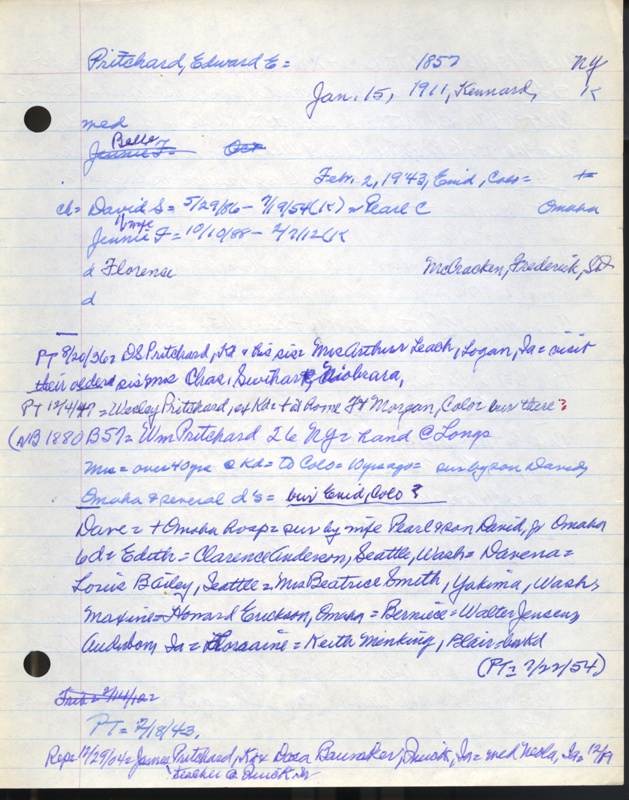 Pritchard, Edward E= 1857 NY
Jan. 15, 1911, Kennard, K
med
Belle
Jennie F=
Febr. 2, 1943, Enid, Colo=
ch= David S= 5/29/86 - 7/9/54(K) = Pearl C Omaha
Jennie F= 10/10/88 - 2/2/12(K
d Florence McCracken, Frederick, SD
d
PT 8/20/36= DS Pritchard, Kd & his sis= Mrs Arthur Leach, Logan, Ia= visit
their oldest sis Mrs Chas. Niobrara,
PT 12/4/47= Wesley Pritchard, ex Kd= Ft Morgan, Color bur there?
(NB 1880 B57= Wm Pritchard 26 NY= hand @ Longs
Mrs= over 40 yrs @ Kd= to Colo= 10 yrs ago= sur by son David,
Omaha & several d's= bur Enid, Colo?
Dave= + Omaha hosp= sur by wife Pearl & son David, Jr Omaha
6d= Edith= Clarence Anderson, Seattle, Wash= Davena=
Louis Bailey, Seattle= Mrs Beatrice Smith, Yakima, Wash,
Maxine= Howard Erickson, Omaha= Berniece= Walter Jensen,
Audubon, Ia= Lorraine= Keith Menking, Blair
(PT= 7/22/54)
PT= 2/18/43,
Rep= 12/29/04= James Pritchard, Dora Quick, Ia= med Neola, Ia=
teacher @ Quick, Ia